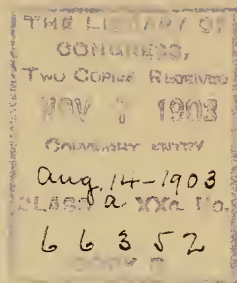 THE LIBRARY OF
CONGRESS,
TWO COPIES RECEIVED
NOV 7 1903
COPYRIGHT ENTRY
Aug. 14-1903
CLASS a XXc. No.
66352
COPY